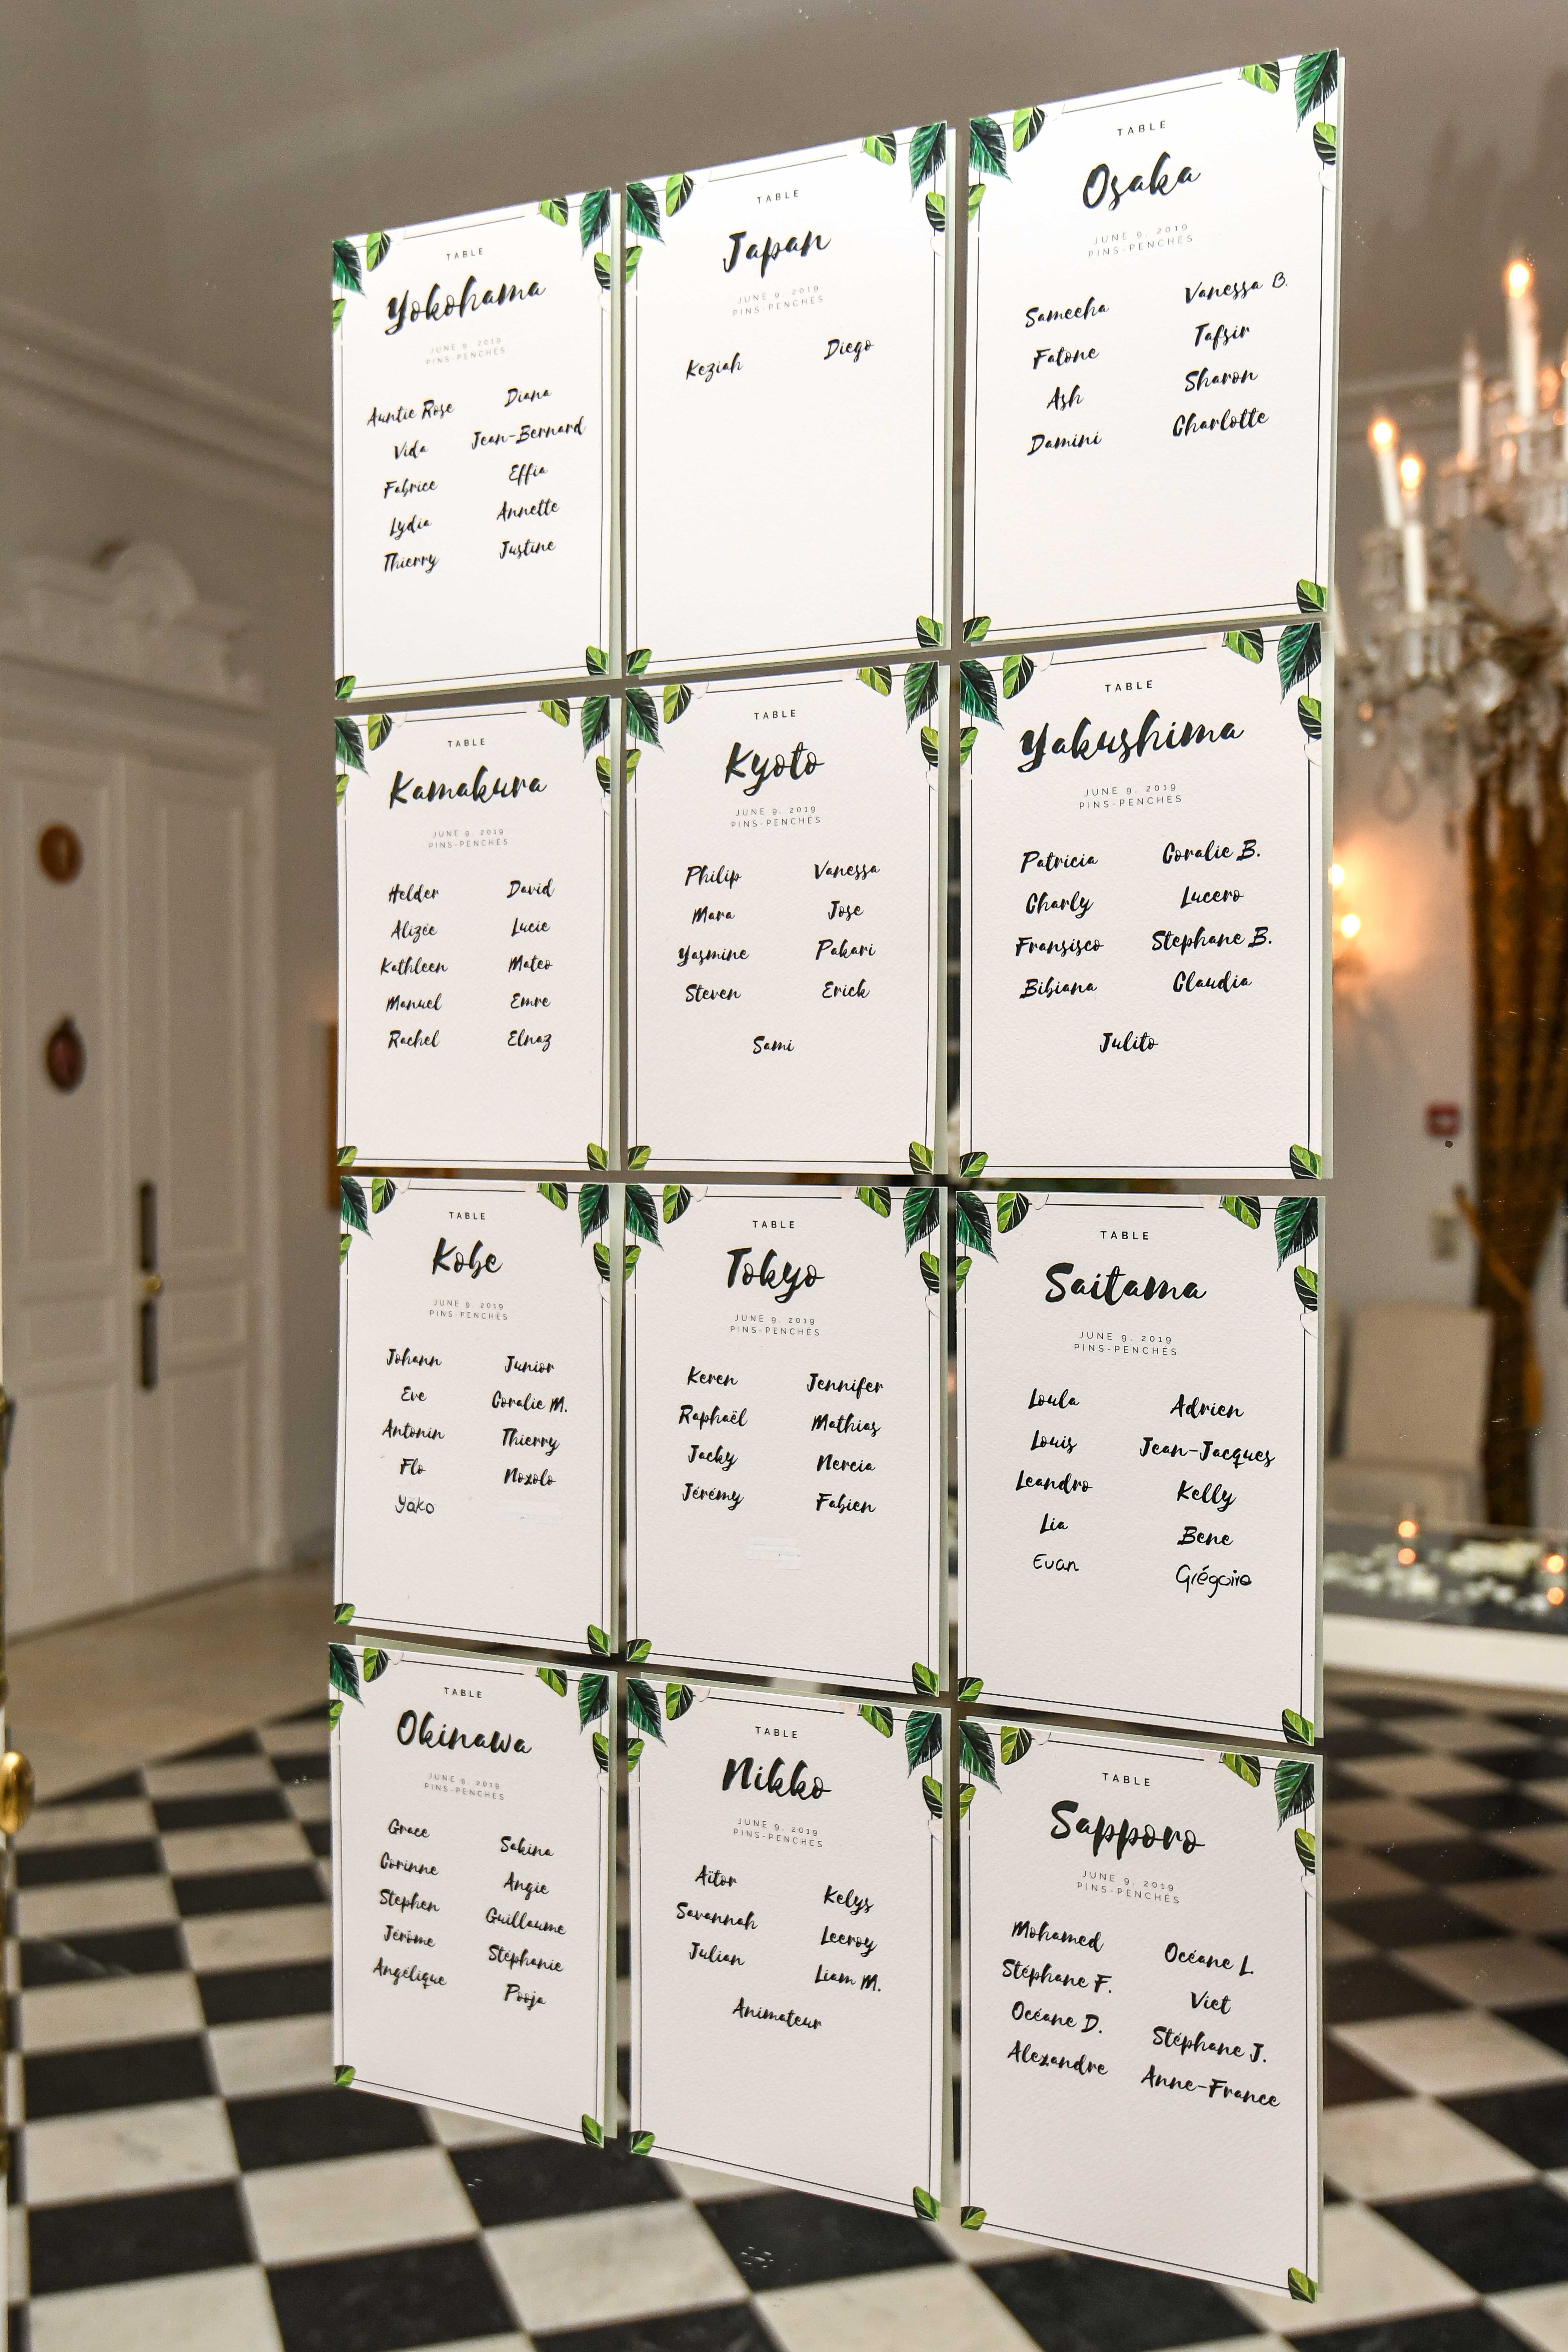 TABLE
Yokohama
JUNE 9, 2019
PINS-PENCHÉS
Auntie Rose Diana
Vida Jean-Bernard
Fabrice Effia
Lydia Annette
Thierry Justine
TABLE
Japan
JUNE 9, 2019
PINS-PENCHÉS
Keziah Diego
TABLE
Osaka
JUNE 9, 2019
PINS-PENCHÉS
Sameeha Vanessa B.
Fatone Tafsir
Ash Sharon
Damini Charlotte
TABLE
Kamakura
JUNE 9, 2019
PINS-PENCHÉS
Helder David
Alizée Lucie
Kathleen Mateo
Manuel Emre
Rachel Elnaz
TABLE
Kyoto
JUNE 9, 2019
PINS-PENCHÉS
Philip Vanessa
Mara Jose
Yasmine Pakari
Steven Erick
Sami
TABLE
Yakushima
JUNE 9, 2019
PINS-PENCHÉS
Patricia Coralie B.
Charly Lucero
Fransisco Stephane B.
Bibiana Claudia
Julito
TABLE
Kobe
JUNE 9, 2019
PINS-PENCHÉS
Johann Junior
Eve Coralie M.
Antonin Thierry
Flo Noxolo
Yako
TABLE
Tokyo
JUNE 9, 2019
PINS-PENCHÉS
Keren Jennifer
Raphaël Mathias
Jacky Nercia
Jérémy Fabien
TABLE
Saitama
JUNE 9, 2019
PINS-PENCHÉS
Loula Adrien
Louis Jean-Jacques
Leandro Kelly
Lia Bene
Evan Grégoire
TABLE
Okinawa
JUNE 9, 2019
PINS-PENCHÉS
Grace Sakina
Corinne Angie
Stephen Guillaume
Jérôme Stéphanie
Angélique Pooja
TABLE
Nikko
JUNE 9, 2019
PINS-PENCHÉS
Aïtor Kelys
Savannah Leeroy
Julian Liam M.
Animateur
TABLE
Sapporo
JUNE 9, 2019
PINS-PENCHÉS
Mohamed Océane L.
Stéphane F. Viet
Océane D. Stéphane J.
Alexandre Anne-France